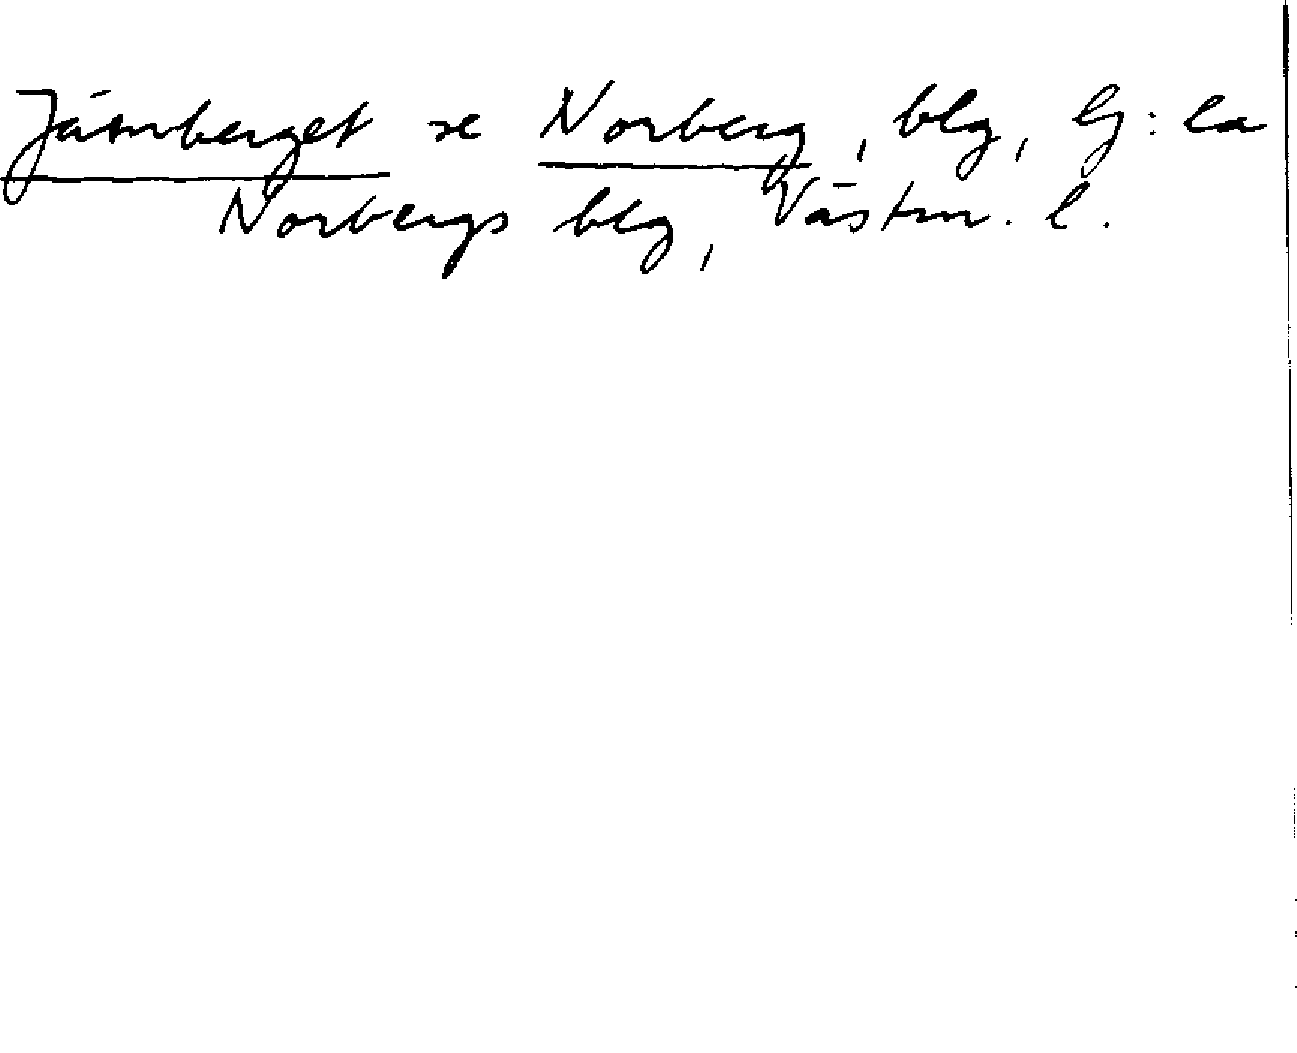 Järnberget se Norberg, blg, G:la
Norbergs blg, Västm. l.